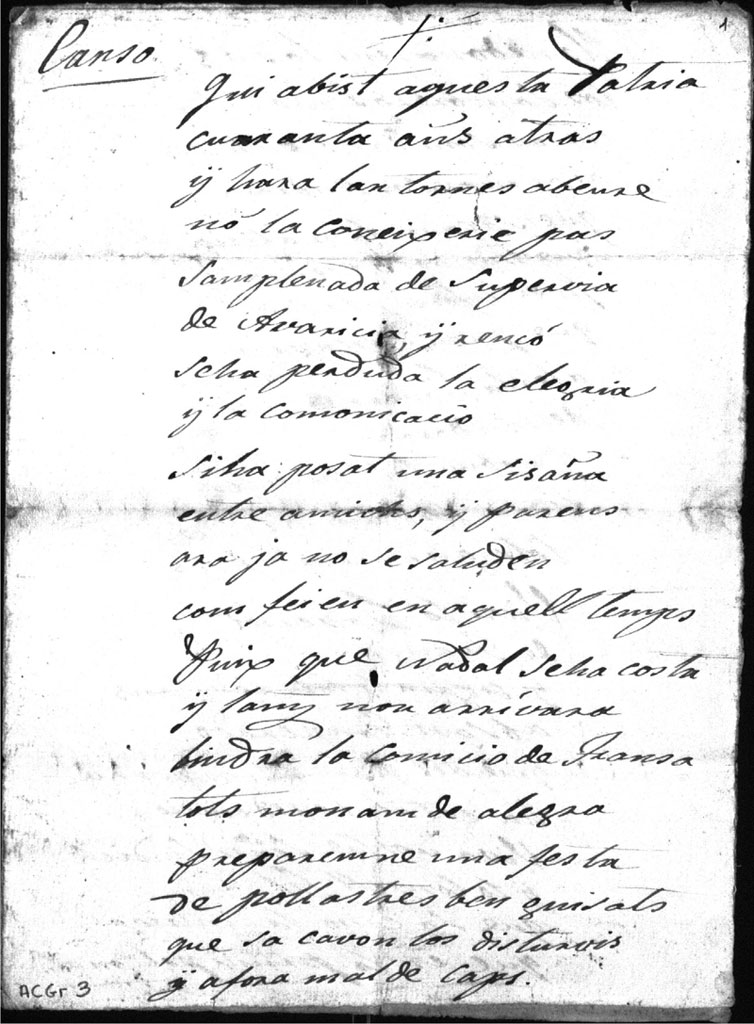 1
Canso
Qui abist aquesta Patria
cuaranta añs atras
ÿ hara lan tornes abeure
nó la coneixerie pas
Samplenada de Supervia
de Avaricia, ÿ rencó
Seha perduda la elegria
ÿ la comonicació
Siha posat una Sisaña
entre amichs, ÿ parens
ara ja no se saluden
com feien en aquell temps
Puix que Nadal Seha costa
ÿ lany nou arrivara
tindra la comicio de Fransa
tots monam de alegra
preparemne una festa
de pollastres ben guisats
que sa cavon los disturvis
ÿ afora mal de Caps.
ACGr 3